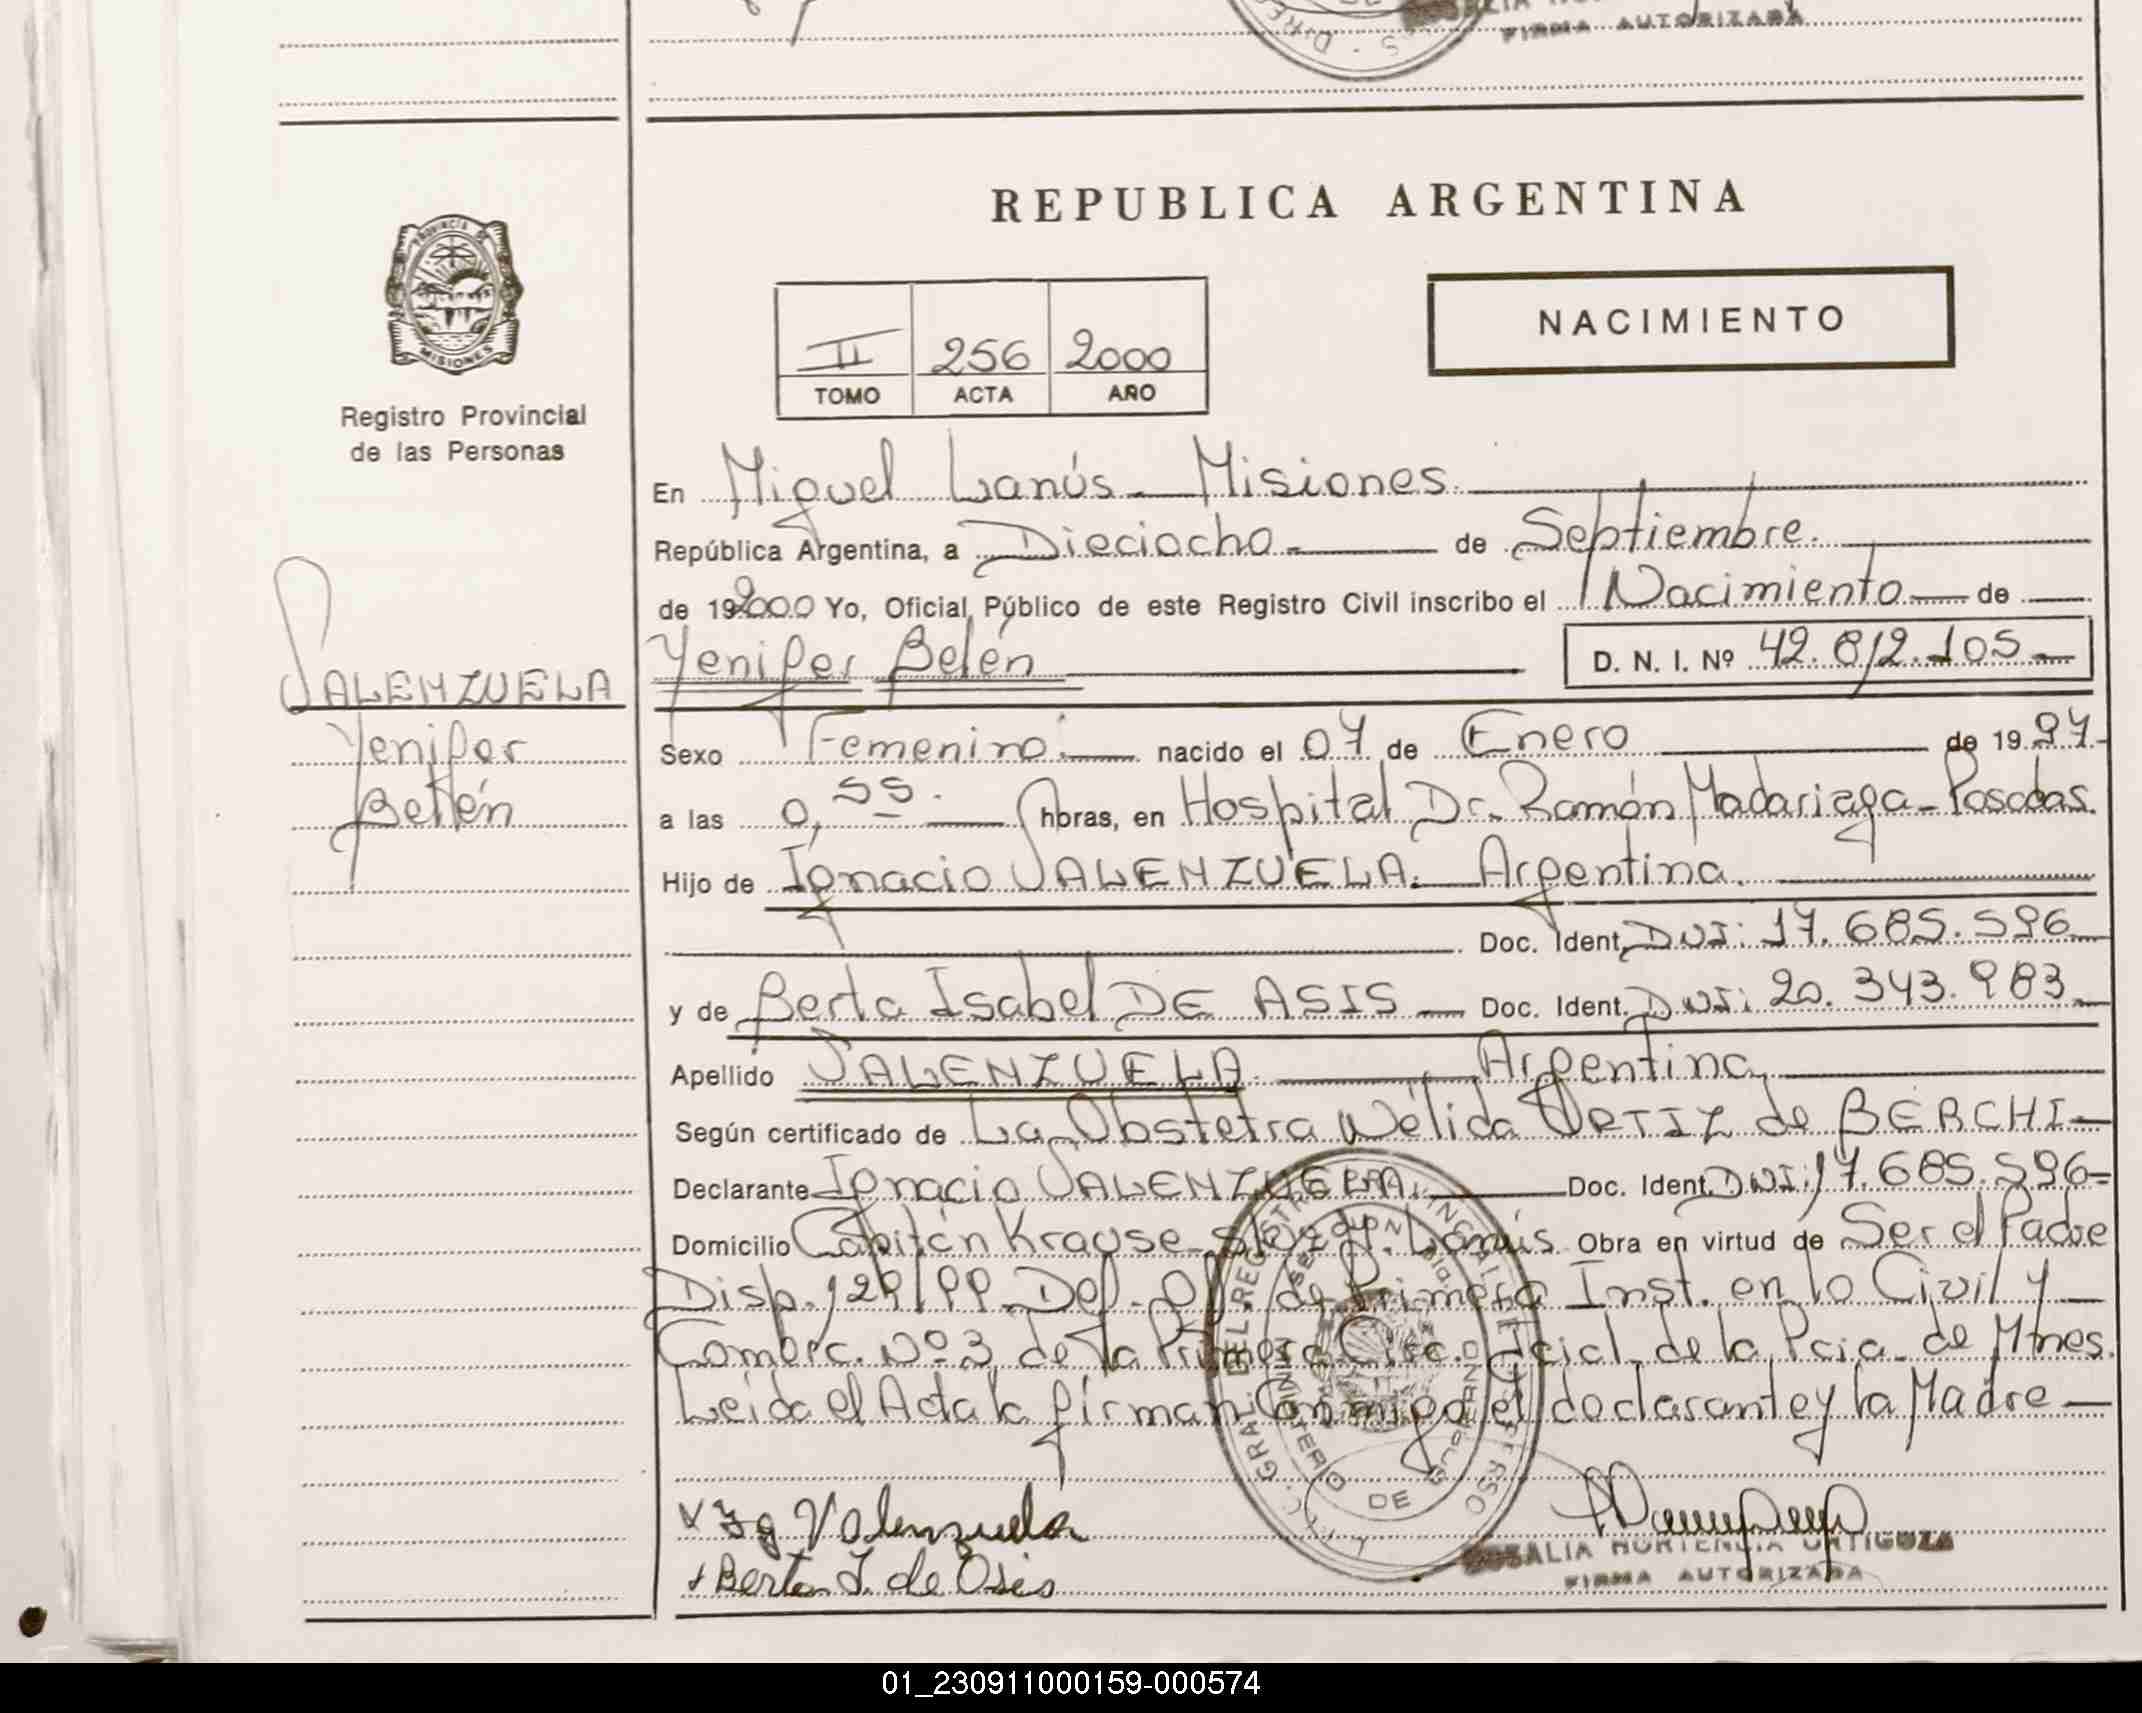 FIRMA AUTORIZADA
REPUBLICA ARGENTINA
PROVINCIA DE
MISIONES
NACIMIENTO
II 256 2000
TOMO ACTA AÑO
Registro Provincial
de las Personas
En Miguel Lanús - Misiones.
República Argentina, a Dieciocho de Septiembre.
de 192000 Yo, Oficial Público de este Registro Civil inscribo el Nacimiento de
VALENZUELA
Yenifer
Belén
Yenifer Belén D. N. I. Nº 42.812.105
Sexo Femenino. nacido el 07 de Enero de 1997.
a las 0,55. horas, en Hospital Dr. Ramón Madariaga - Posadas.
Hijo de Ignacio VALENZUELA. Argentina.
Doc. Ident. DNI: 17.685.596
y de Berta Isabel DE ASIS Doc. Ident. DNI: 20.343.983
Apellido VALENZUELA. Argentina
Según certificado de La Obstetra Nélida ORTIZ de BERCHI
Declarante Ignacio VALENZUELA. Doc. Ident. DNI: 17.685.596
Domicilio Capitán Krause Lanús. Obra en virtud de Ser el Padre
Disp. 129/99 Def. Of. de Primera Inst. en lo Civil y
Comerc. Nº 3 de la Primera Circ. Jcial. de la Pcia. de Mnes.
Leída el Acta la firman Conmigo el declarante y la Madre
x Ig Valenzuela
x Berta I. de Asis
ROSALIA HORTENCIA ORTIGOZA
FIRMA AUTORIZADA
01_230911000159-000574